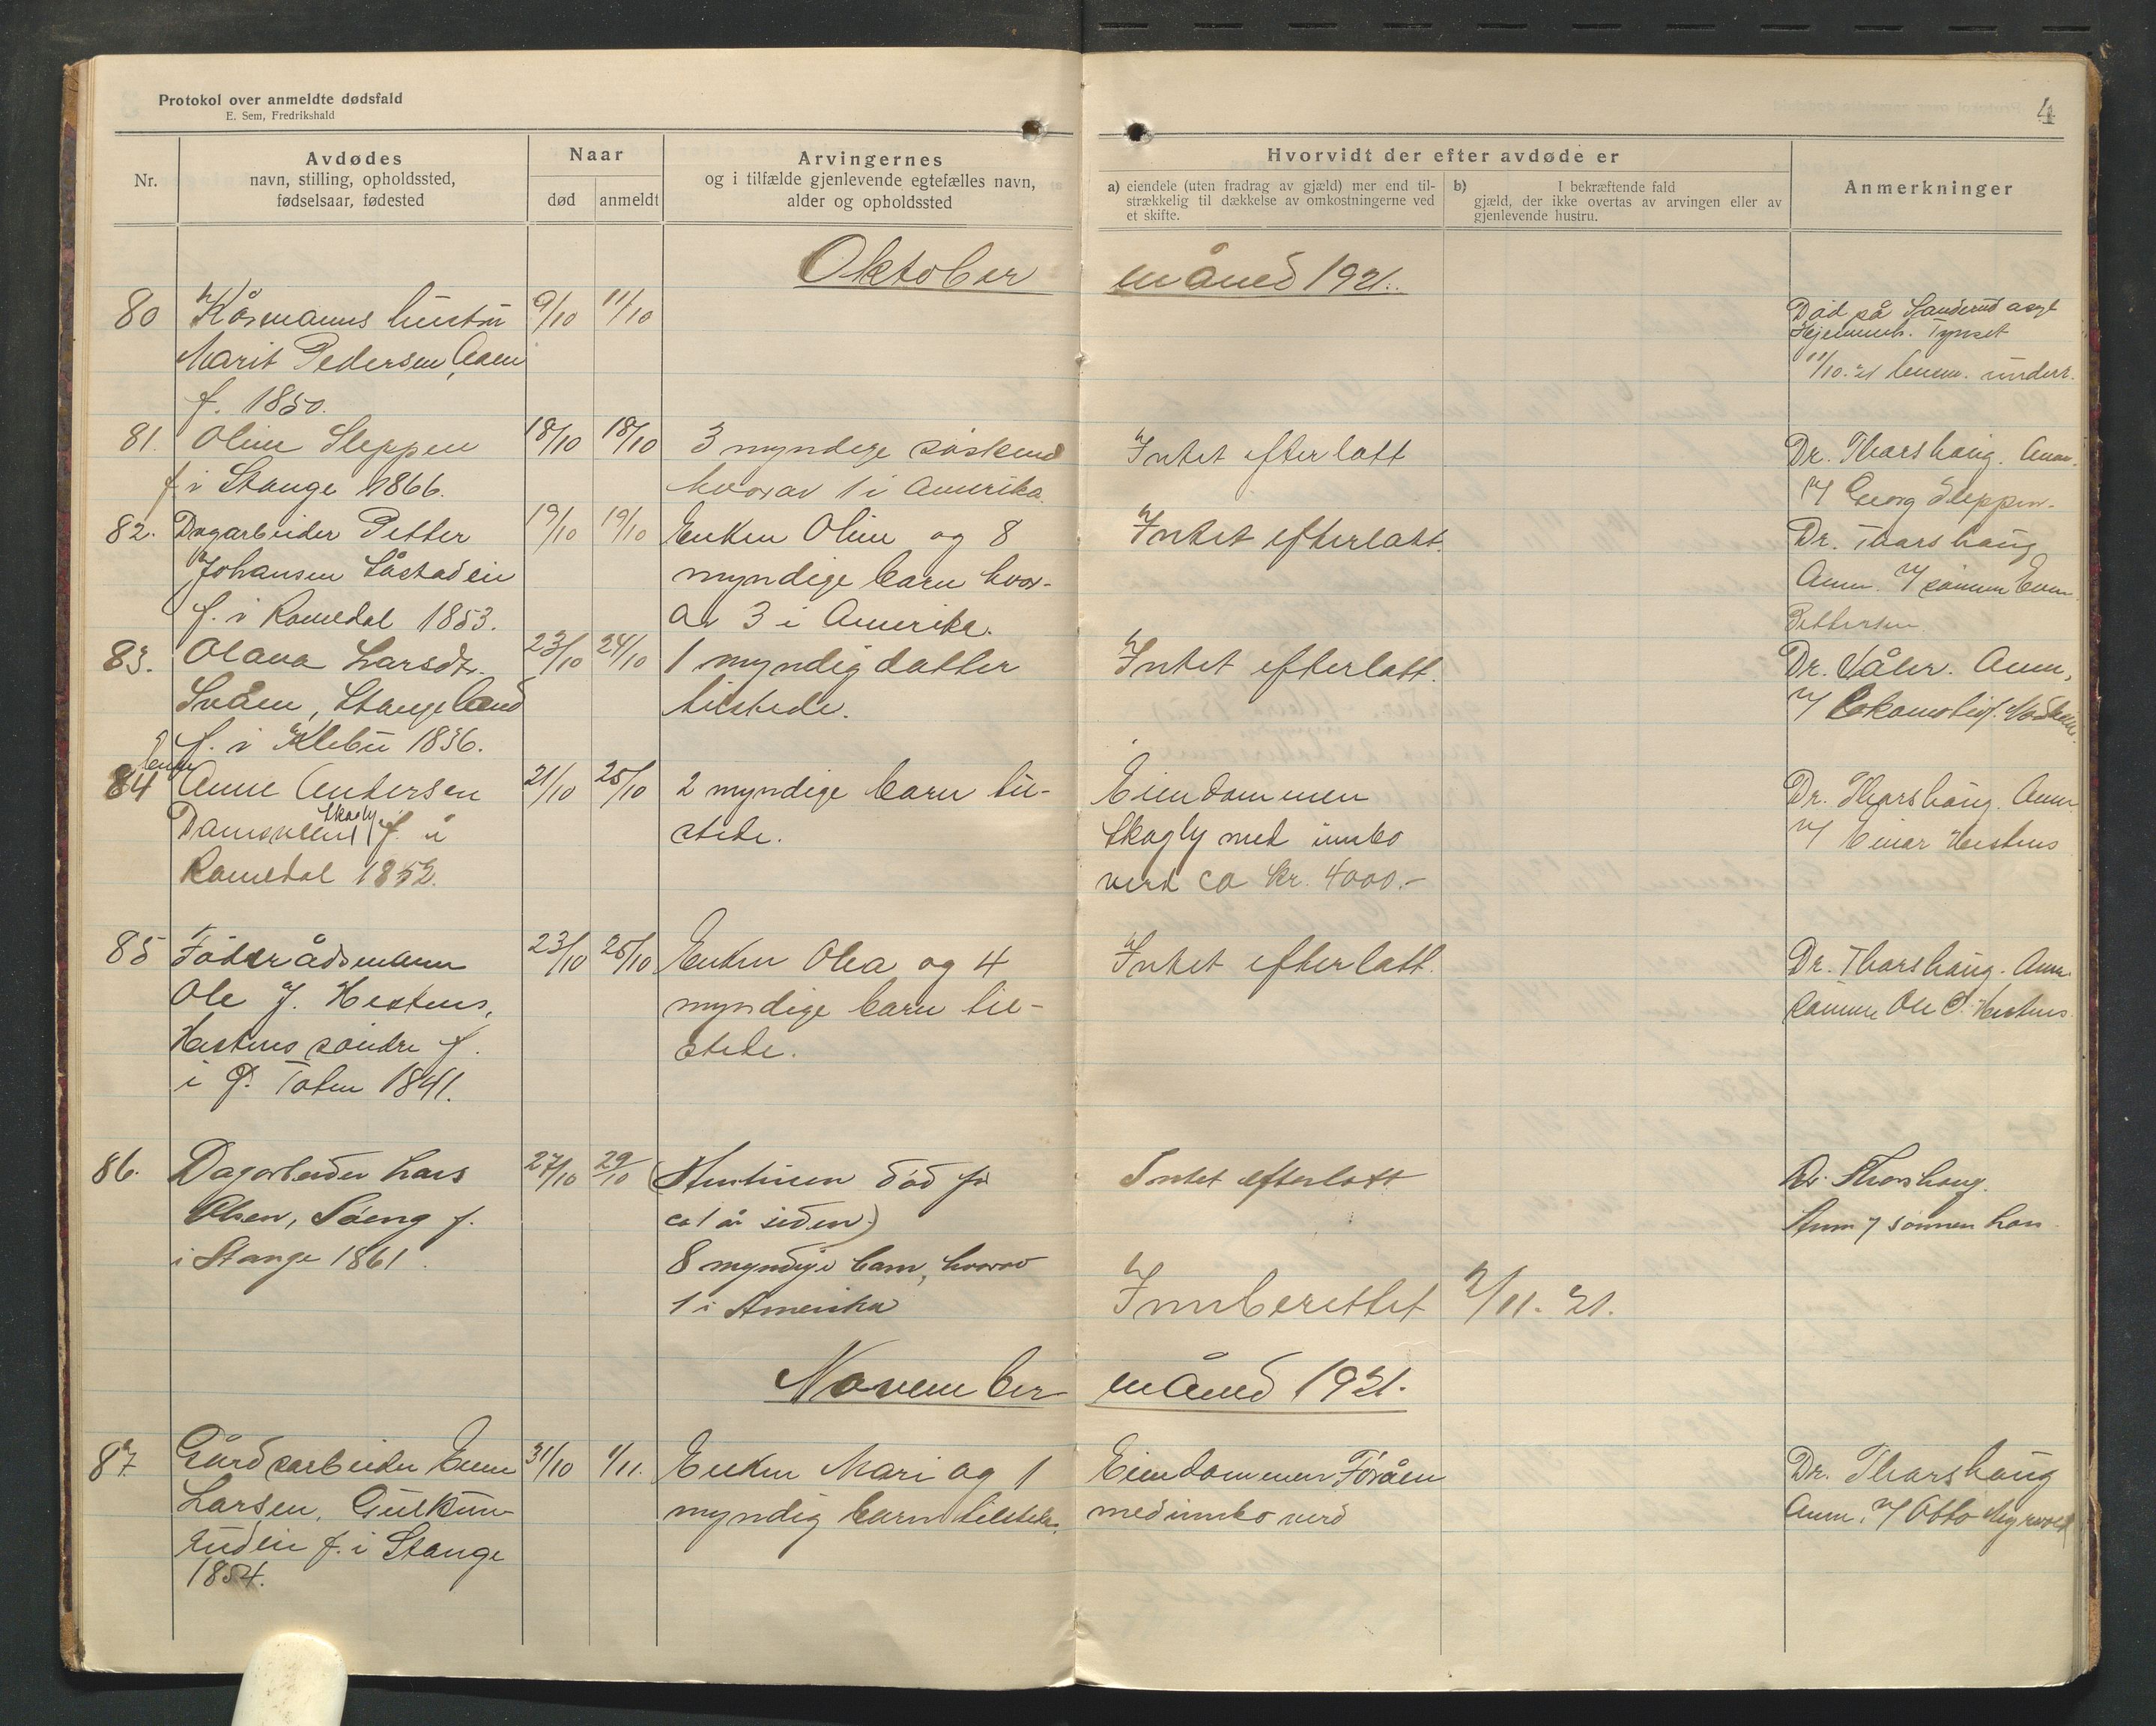 Protokol over anmeldte dødsfald
E. Sem, Fredrikshald
4
Nr.
Avdødes
navn, stilling, opholdssted,
fødselsaar, fødested
Naar
død
anmeldt
Arvingernes
og i tilfælde gjenlevende egtefælles navn,
alder og opholdssted
Hvorvidt der efter avdøde er
a) eiendele (uten fradrag av gjæld) mer end til-
strækkelig til dækkelse av omkostningerne ved
et skifte.
b) I bekræftende fald
gjæld, der ikke overtas av arvingen eller av
gjenlevende hustru.
Anmerkninger
Oktober måned 1921.
80 Kårmanns hustru 9/10 11/10
Marit Pedersen
f. 1850.
Død på Sanderud asyl
Hjemmeh. Tynset
11/10.21 lensm. underr.
81. Oline Sleppen 18/10 18/10 3 myndige søskend Intet efterlatt Dr. Thorshaug. Anm.
f i Stange 1866. hvorav 1 i Amerika. v/ Georg Sleppen.
82. Dagarbeider Petter 19/10 19/10 Enken Oline og 8 Intet efterlatt. Dr. Thorshaug
Johansen Såstadeie myndige barn hvor- Anm. v/ sønnen Even
f. i Romedal 1853. av 3 i Amerika. Pettersen
83. Olava Larsdr. 23/10 24/10 1 myndig datter Intet efterlatt. Dr. Våler. Anm.
Svåen, Stangeland tilstede. v/
f. i Klebu 1836.
Enke
84 Anne Andersen 21/10 25/10 2 myndige barn til- Eiendommen Dr. Thorshaug. Anm
Skogly f. i stede. Skogly med innbo v/ Einar Hestnes
Romedal 1852. verd ca kr. 4000.-
85 Føderådsmann 23/10 25/10 Enken Olea og 4 Intet efterlatt. Dr. Thorshaug. Anm.
Ole J. Hestnes, myndige barn til- sønnen Ole O. Hestnes.
Hestnes søndre f. stede.
i Ø. Toten 1841.
86. Dagarbeider Lars 27/10 29/10 (Hustruen død for Intet efterlatt Dr. Thorshaug.
Olsen, Søeng f. ca 1 år siden) Anm v/ sønnen
i Stange 1861. 8 myndige barn, hvorav
1 i Amerika Innberettet 2/11. 21.
November måned 1921.
87. Gårdsarbeider Even 31/10 1/11. Enken Mari og 1 Eiendommen Foråen Dr. Thorshaug
Larsen, Gulkun- myndig barn tilstede. med innbo verd Anm. v/ Otto Myrvold
rudeie f. i Stange
1854.